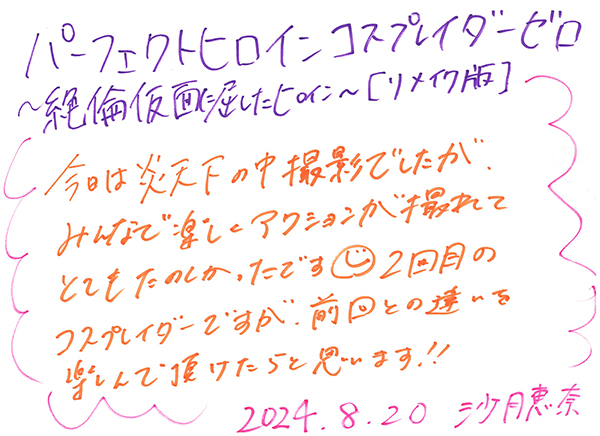 パーフェクトヒロインコスプレイダーゼロ
～絶倫仮面に屈したヒロイン～[リメイク版]
今日は炎天下の中撮影でしたが、
みんなで楽しくアクションが撮れて
とてもたのしかったです 2回目の
コスプレイダーですが、前回との違いを
楽しんで頂けたらと思います!!
2024.8.20 沙月恵奈